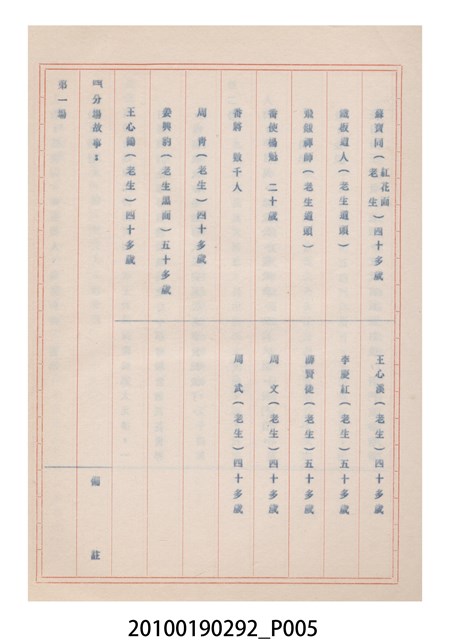 蘇寶同(紅花面老生)四十多歲
鐵板道人(老生道頭)
飛鈸禪師(老生道頭)
番使楊魁 二十歲
番將 數千人
周青(老生)四十多歲
姜興豹(老生黑面)五十多歲
王心鶴(老生)四十多歲
王心溪(老生)四十多歲
李慶紅(老生)五十多歲
薛賢徒(老生)五十多歲
周文(老生)四十多歲
周武(老生)四十多歲
四、分場故事:
第一場
備註
20100190292_P005